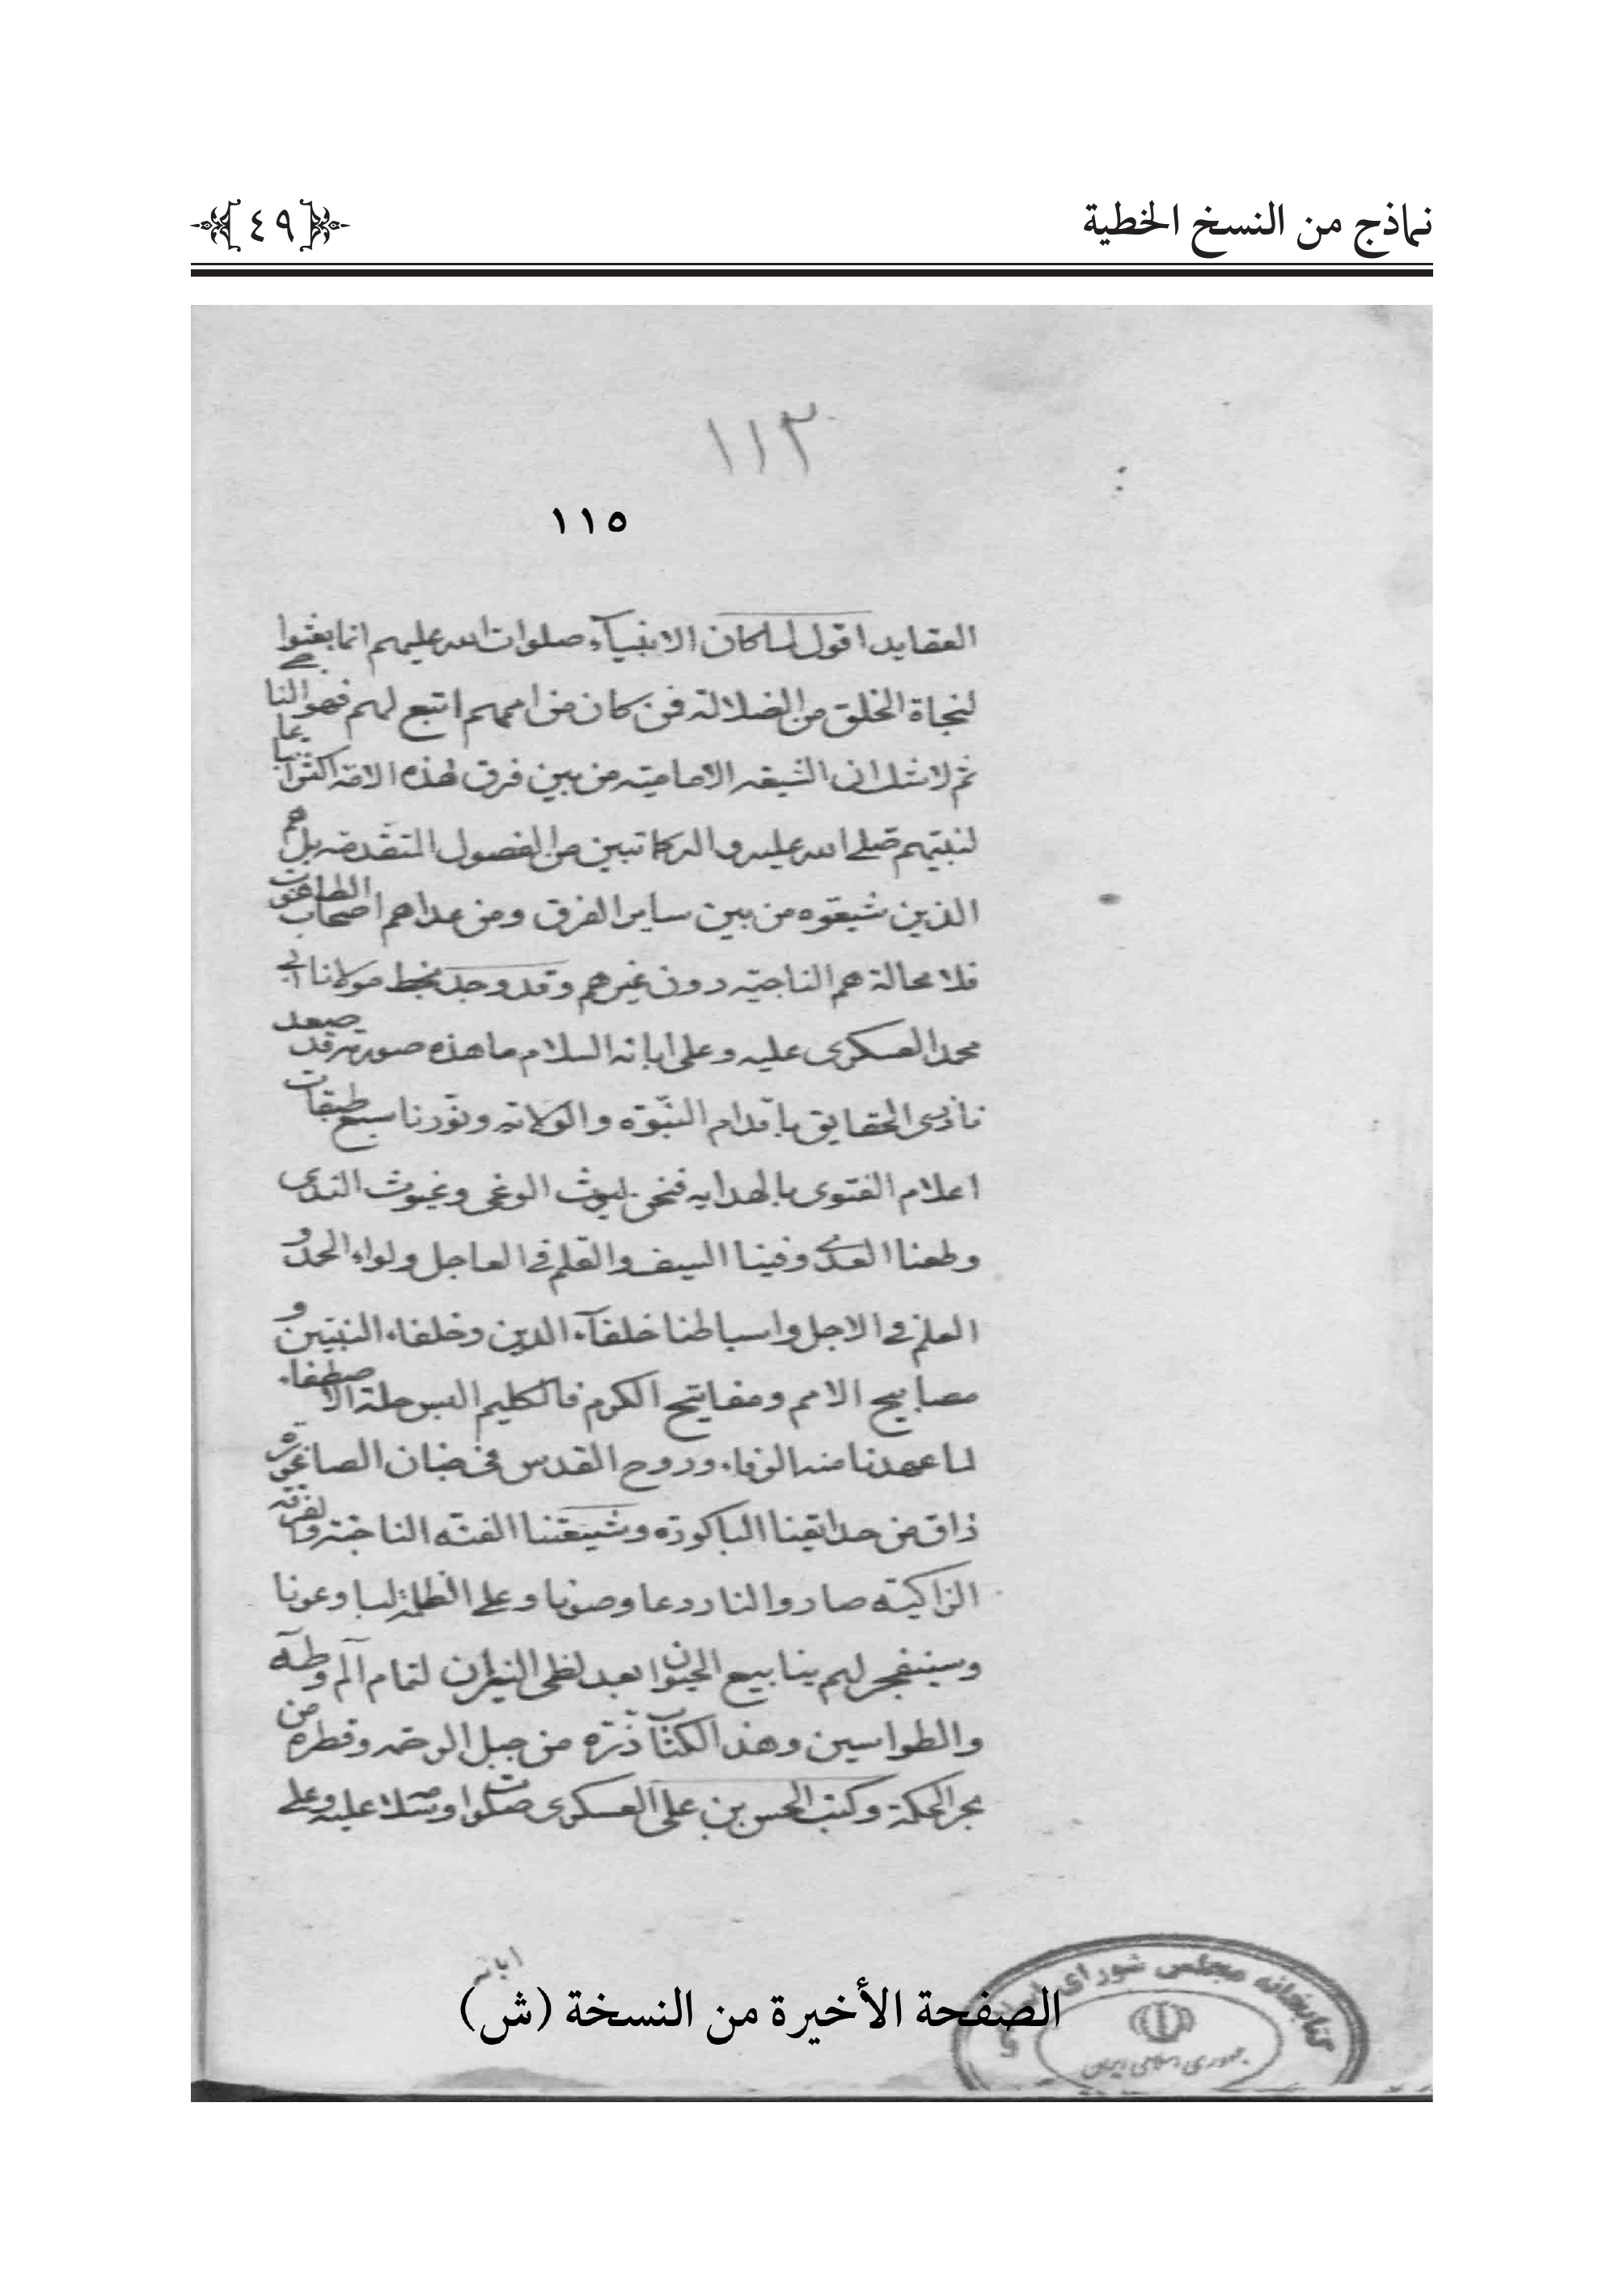 نماذج من النسخ الخطية
٤٩
١١٣
١١٥
العقايد اقول لما كان الانبيآء صلوات الله عليهم انما بعثوا
لنجاة الخلق من الضلالة فمن كان من اممهم اتبع لهم فهو الناجى
ثم لا شك ان الشيعه الاماميته من بين فرق هذه الامة اكثر اتباعا
لنبيهم صلى الله عليه و اله كما تبين من الفصول المتقدمة بل هم
الذين شيعوه من بين ساير الفرق ومن عداهم اصحاب الطاغوت
فلا محالة هم الناجيه دون غيرهم وقد وجد بخط مولانا ابى
محمد العسكرى عليه وعلى ابائه السلام ما هذه صورته قد صعدنا
ذرى الحقايق باقدام النبوة والولاية ونورنا سبع طبقات
اعلام الفتوى بالهدايه فنحن ليوث الوغى وغيوث الندى
وطعنا العدى وفينا السيف والقلم فى العاجل ولواء الحمد و
العلم فى الاجل واسباطنا خلفآء الدين وخلفاء النبيين و
مصابيح الامم ومفاتيح الكرم فالكليم البس حلة الاصطفاء
لما عهدنا منه الوفاء وروح القدس فى جنان الصاغورة
ذاق من حدايقنا الباكورة وشيعتنا الفئة الناجية والفرقة
الزاكيته صاروا لنا ردءا وصونا وعلى الظلمة البا وعونا
وسينفجر لهم ينابيع الحيوان بعد لظى النيران لتمام آلم وطه
والطواسين وهذا الكتاب ذرة من جبل الرحمة وقطرة من
بحر الحكمة وكتب الحسن بن على العسكرى صلوات وسلامه عليه وعلى
ابائه
الصفحة الأخيرة من النسخة (ش)
كتابخانه مجلس شوراى
جمهورى اسلامى ايران